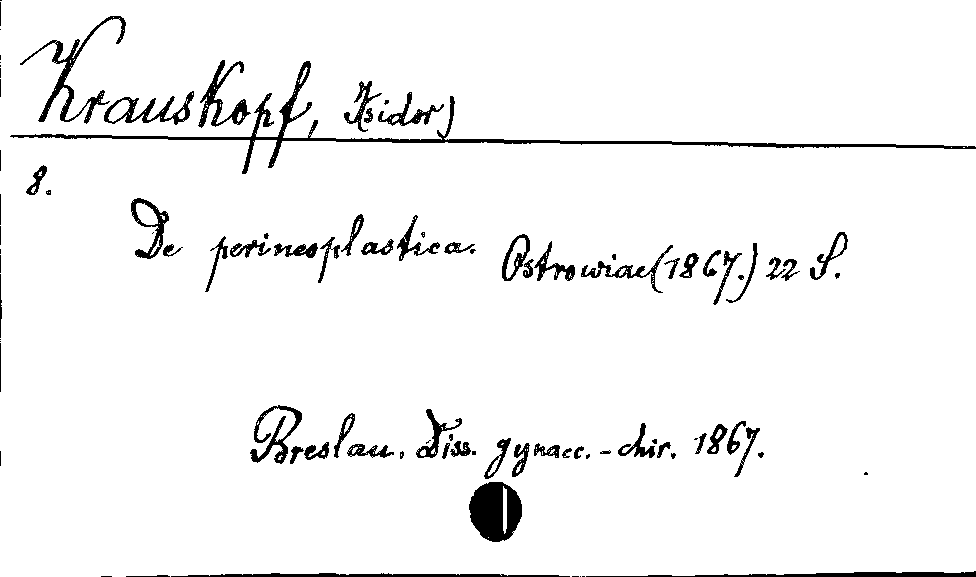 Krauskopf, Isidor)
8.
De perineoplastica. Ostrowiae (1867.) 22 S.
Breslau. Diss. gynaec.-chir. 1867.